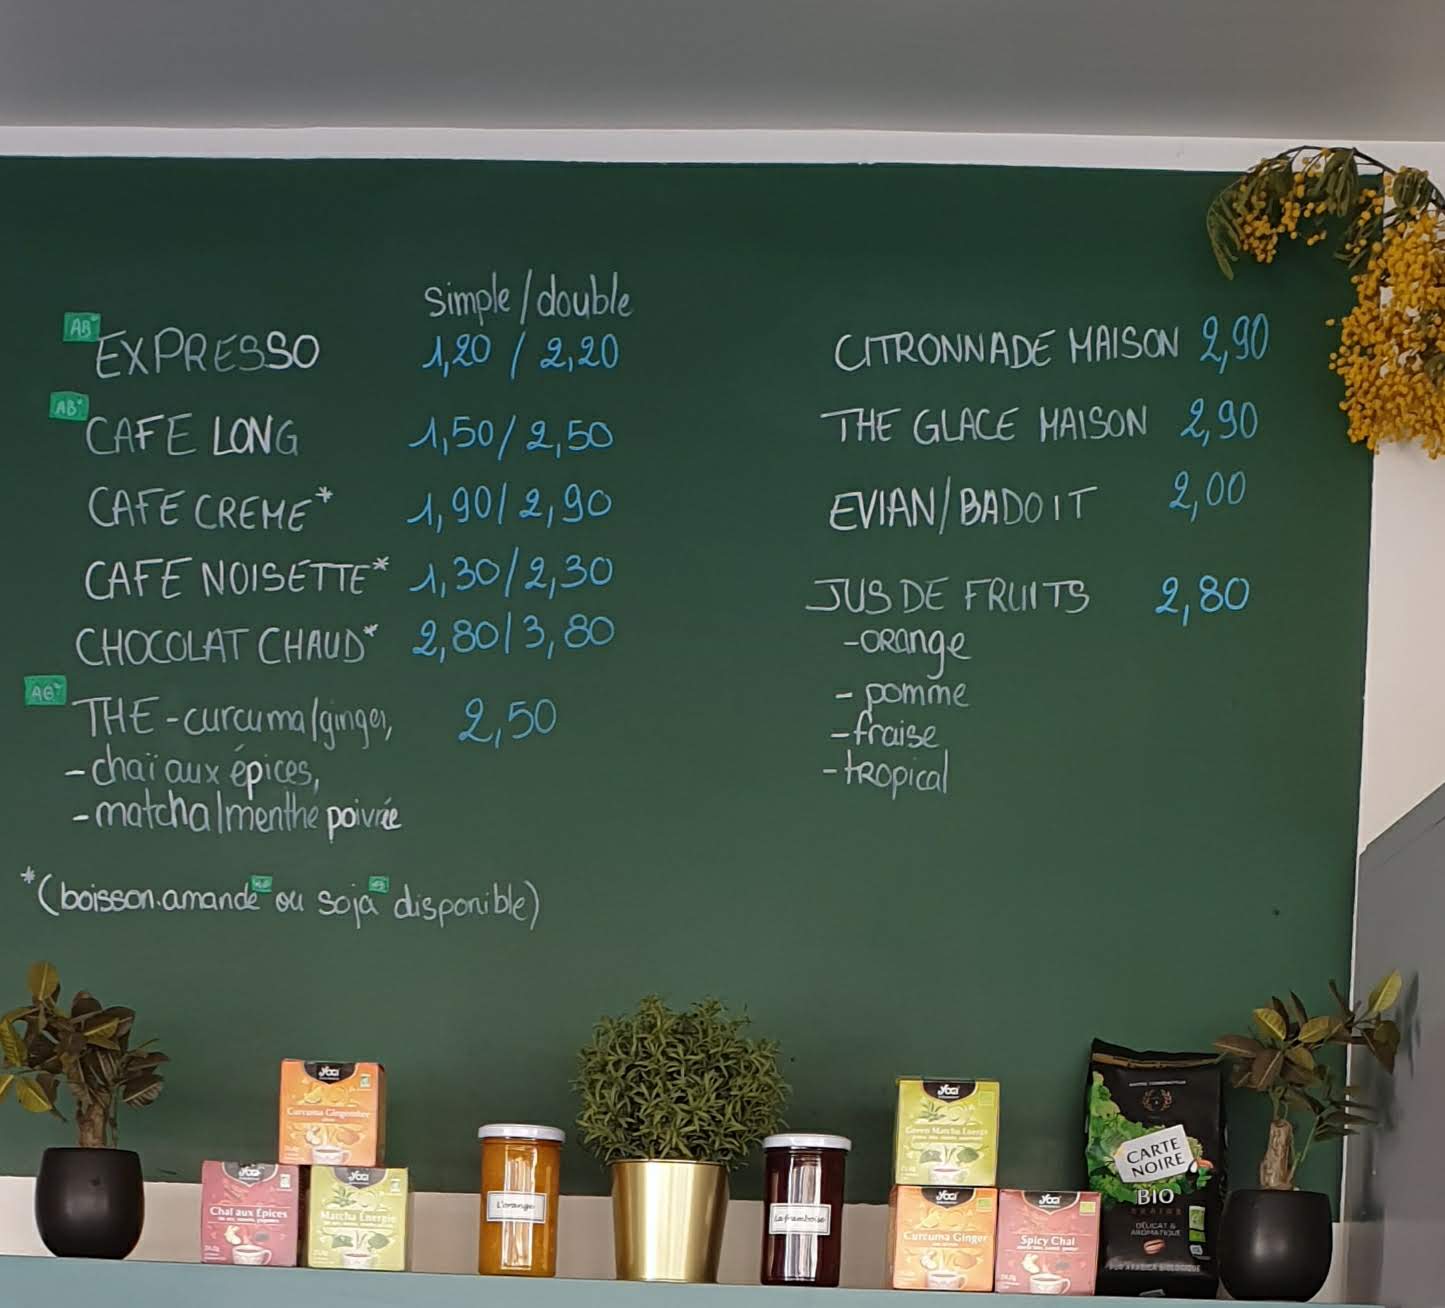 simple/double
AB EXPRESSO 1,20 / 2,20
AB CAFE LONG 1,50/2,50
CAFE CREME* 1,90/2,90
CAFE NOISETTE* 1,30/2,30
CHOCOLAT CHAUD* 2,80/3,80
AB THE - curcuma/ginger, 2,50
- chaï aux épices,
- matcha/menthe poivrée
*(boisson.amande ou soja disponible)
CITRONNADE MAISON 2,90
THE GLACE MAISON 2,90
EVIAN/BADOIT 2,00
JUS DE FRUITS 2,80
-orange
- pomme
-fraise
-tropical
YOGI
Curcuma Gingembre
YOGI
Chai aux Épices
YOGI
Matcha Énergie
L'orange
La framboise
YOGI
Green Matcha Energy
YOGI
Curcuma Ginger
YOGI
Spicy Chai
CARTE
NOIRE
BIO
GRAINS
DÉLICAT &
AROMATIQUE
PUR ARABICA BIOLOGIQUE